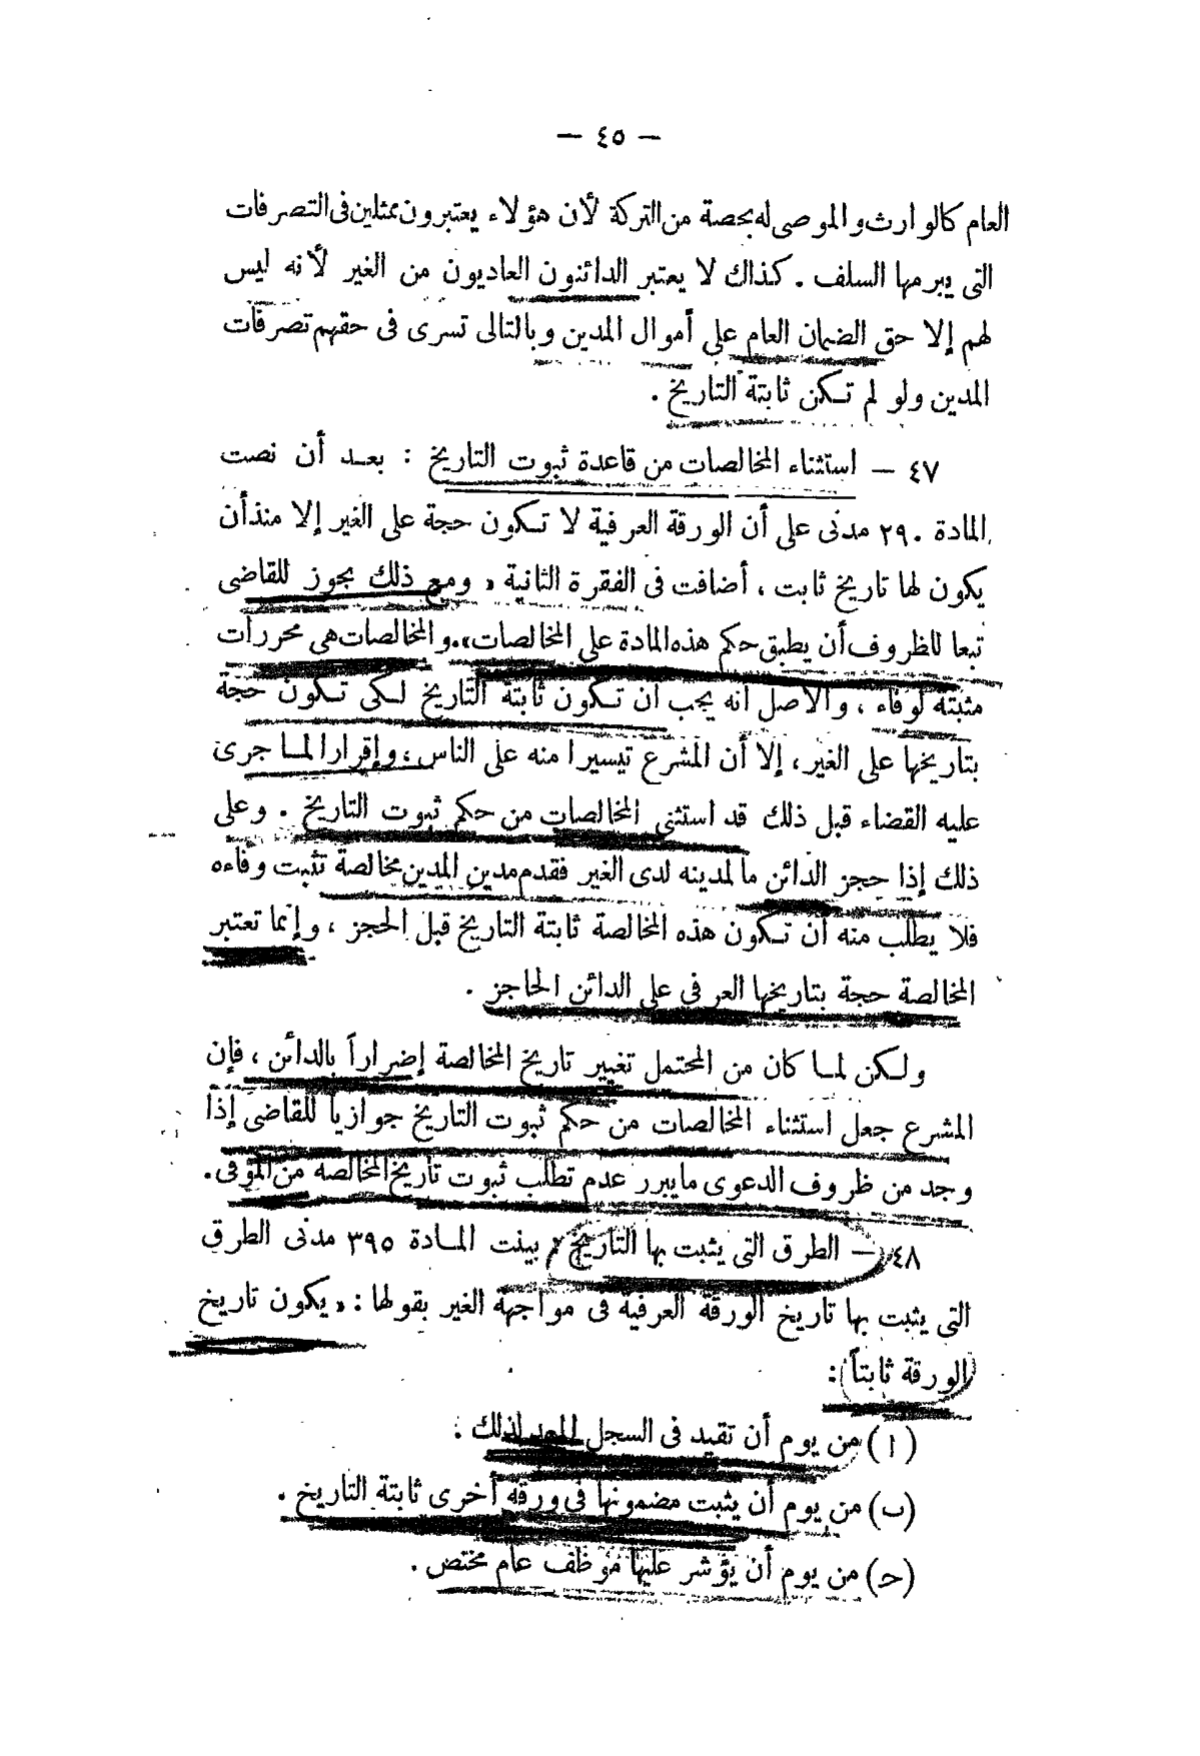 — ٤٥ —
العام كالوارث والموصى له بحصة من التركة لأن هؤلاء يعتبرون ممثلين فى التصرفات
التى يبرمها السلف . كذاك لا يعتبر الدائنون العاديون من الغير لأنه ليس
لهم إلا حق الضمان العام على أموال المدين وبالتالى تسرى فى حقهم تصرفات
المدين ولو لم تكن ثابتة التاريخ .
٤٧ — استثناء المخالصات من قاعدة ثبوت التاريخ : بعد أن نصت
المادة ٢٩٠ مدنى على أن الورقة العرفية لا تكون حجة على الغير إلا منذ أن
يكون لها تاريخ ثابت ، أضافت فى الفقرة الثانية « ومع ذلك يجوز للقاضى
تبعا للظروف أن يطبق حكم هذه المادة على المخالصات» . والمخالصات هى محررات
مثبته لوفاء ، والأصل أنه يجب أن تكون ثابتة التاريخ لكى تكون حجة
بتاريخها على الغير ، إلا أن المشرع تيسيرا منه على الناس ، وإقرارا لما جرى
عليه القضاء قبل ذلك قد استثنى المخالصات من حكم ثبوت التاريخ . وعلى
ذلك إذا حجز الدائن ما لمدينه لدى الغير فقدم مدين المدين مخالصة تثبت وفاءه
فلا يطلب منه أن تكون هذه المخالصة ثابتة التاريخ قبل الحجز ، وإنما تعتبر
المخالصة حجة بتاريخها العرفى على الدائن الحاجز .
ولكن لما كان من المحتمل تغيير تاريخ المخالصة إضراراً بالدائن ، فإن
المشرع جعل استثناء المخالصات من حكم ثبوت التاريخ جوازياً للقاضى إذا
وجد من ظروف الدعوى ما يبرر عدم تطلب ثبوت تاريخ المخالصة من الموفى .
٤٨ — الطرق التى يثبت بها التاريخ : بينت المادة ٣٩٥ مدنى الطرق
التى يثبت بها تاريخ الورقة العرفية فى مواجهة الغير بقولها : « يكون تاريخ
الورقة ثابتاً :
( ا ) من يوم أن تقيد فى السجل المعد لذلك .
(ب) من يوم أن يثبت مضمونها فى ورقة أخرى ثابتة التاريخ .
(حـ) من يوم أن يؤشر عليها موظف عام مختص .